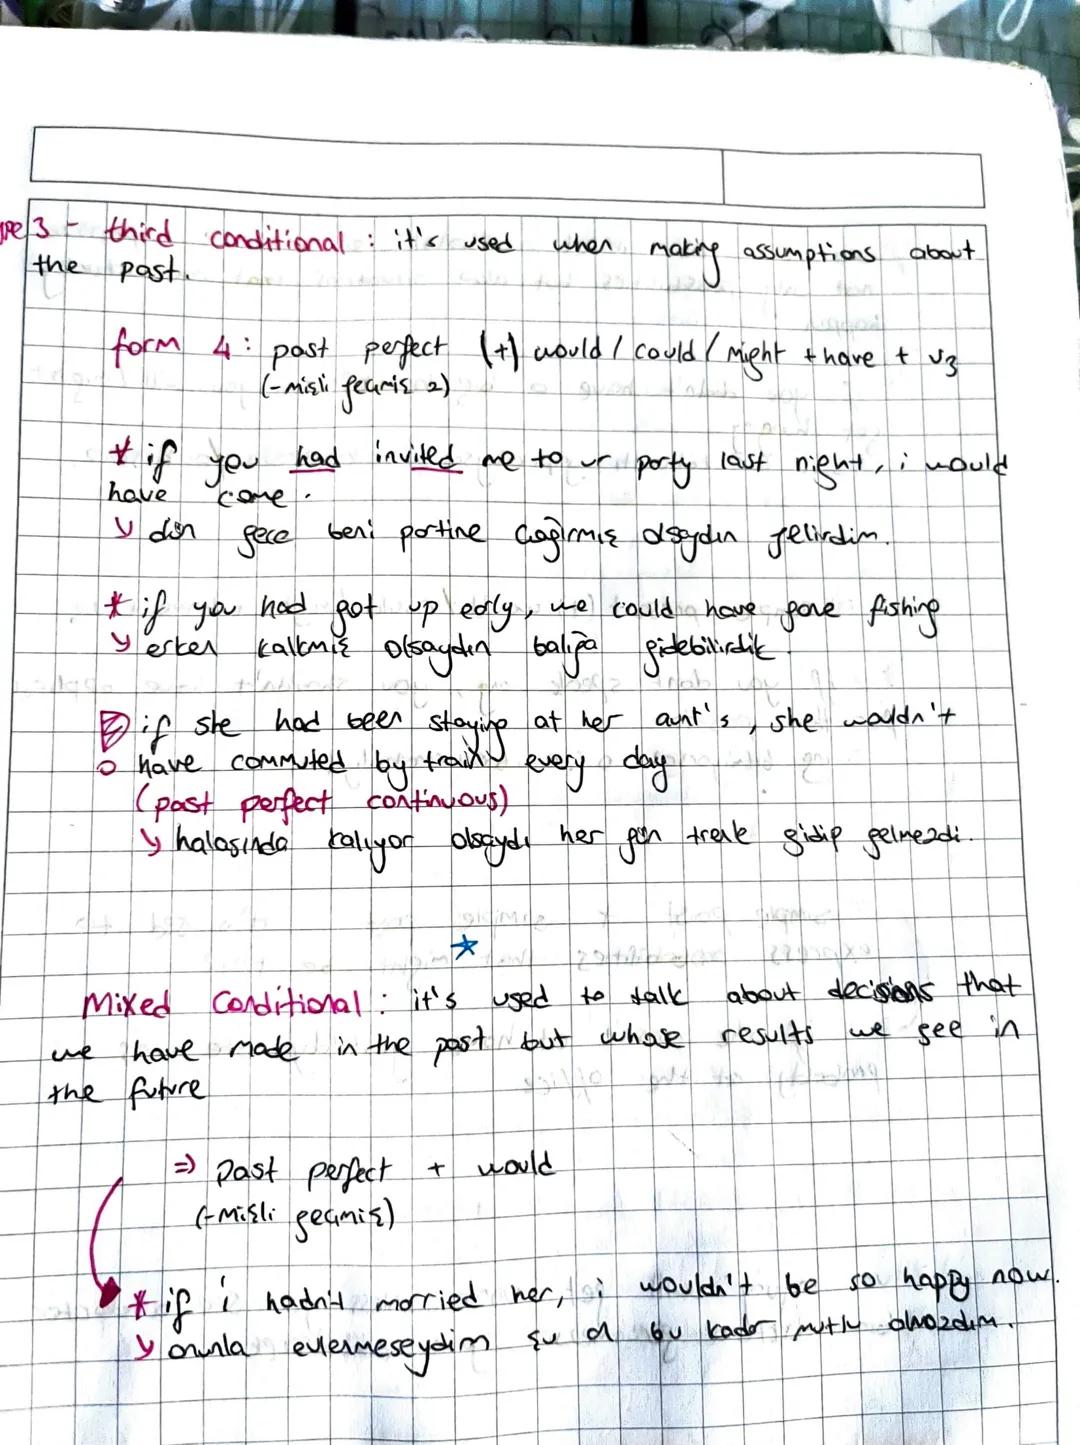 3 - third conditional : it's used when making assumptions about
the past.
form 4 : past perfect (+) would / could / might + have + v3
(-mişli geçmiş 2)
* if you had invited me to ur party last night, i would
have come.
dün gece beni partine çağırmış olsaydın gelirdim.
* if you had got up early, we could have gone fishing
erken kalkmış olsaydın balığa gidebilirdik.
if she had been staying at her aunt's, she wouldn't
have commuted by train every day
(past perfect continuous)
halasında kalıyor olsaydı her gün trenle gidip gelmezdi.
Mixed Conditional : it's used to talk about decisions that
we have made in the past but whose results we see in
the future
=> past perfect + would
(-mişli geçmiş)
* if i hadn't married her, i wouldn't be so happy now.
onunla evlenmeseydim şu an bu kadar mutlu olmazdım.